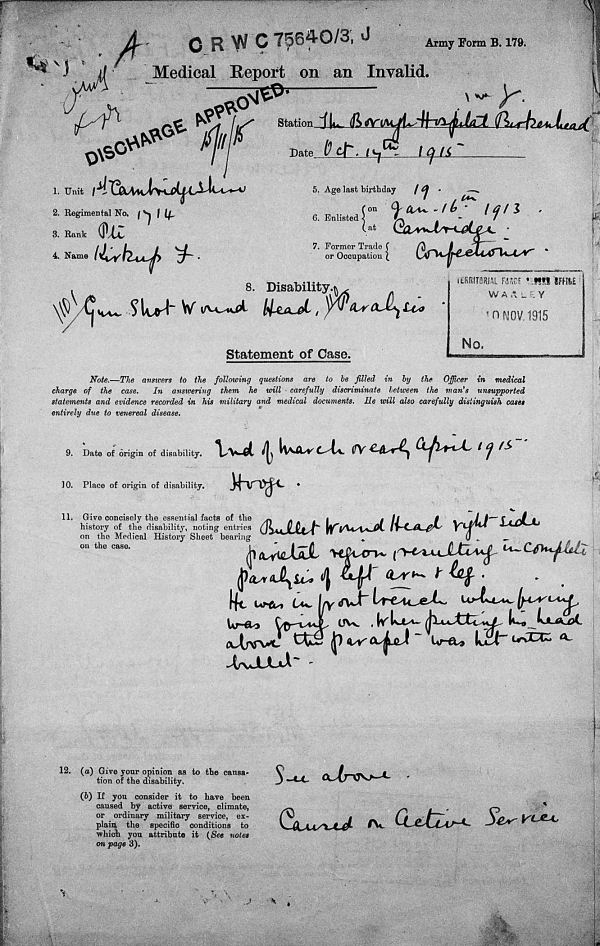 A
C R W C 75640/3, J
Army Form B. 179.
Medical Report on an Invalid.
DISCHARGE APPROVED.
15/11/15
Station The Borough Hospital Birkenhead
Date Oct. 14th 1915
1. Unit 1st Cambridgeshire
2. Regimental No. 1714
3. Rank Pte
4. Name Kirkup F.
5. Age last birthday 19.
6. Enlisted { on Jan - 16th 1913.
at Cambridge.
7. Former Trade or Occupation { Confectioner.
8. Disability.
Gun Shot Wound Head, Paralysis.
TERRITORIAL FORCE OFFICE
WARLEY
10 NOV. 1915
No.
Statement of Case.
Note.—The answers to the following questions are to be filled in by the Officer in medical
charge of the case. In answering them he will carefully discriminate between the man's unsupported
statements and evidence recorded in his military and medical documents. He will also carefully distinguish cases
entirely due to venereal disease.
9. Date of origin of disability. End of March or early April 1915
10. Place of origin of disability. Hooge.
11. Give concisely the essential facts of the
history of the disability, noting entries
on the Medical History Sheet bearing
on the case.
Bullet Wound Head right side
parietal region, resulting in complete
paralysis of left arm & leg.
He was in front trench when firing
was going on. When putting his head
above the parapet was hit with a
bullet.
12. (a) Give your opinion as to the causa-
tion of the disability.
See above.
(b) If you consider it to have been
caused by active service, climate,
or ordinary military service, ex-
plain the specific conditions to
which you attribute it (See notes
on page 3).
Caused on Active Service